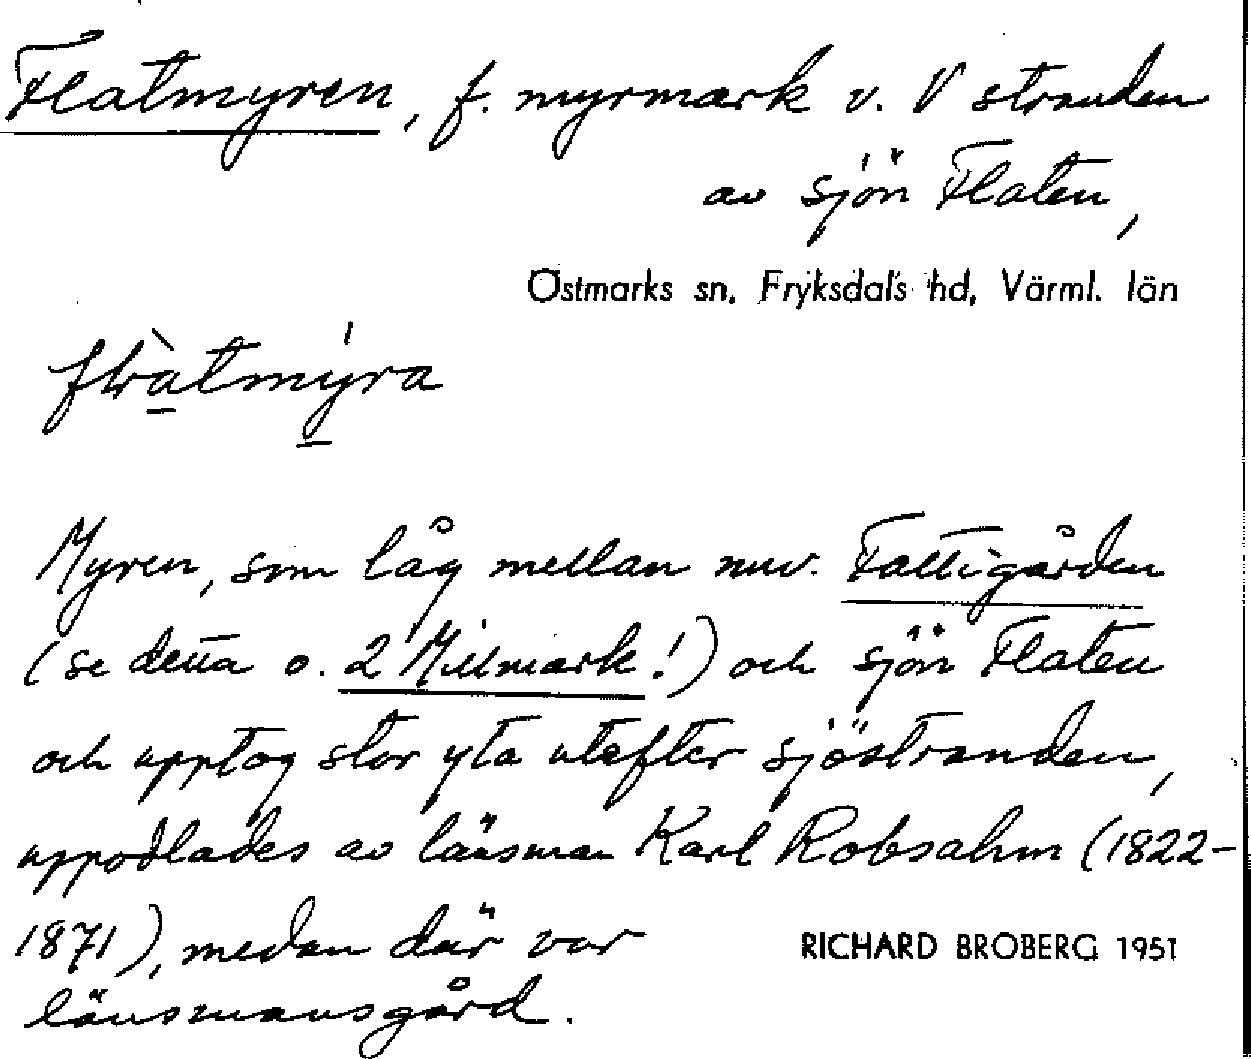 Flatmyren, f. myrmark v. V stranden
av sjön Flaten,
Östmarks sn, Fryksdals hd, Värml. län
flàtmýra
Myren, som låg mellan nuv. Fattigården
(se detta o. 2 Millmark!) och sjön Flaten
och upptog stor yta utefter sjöstranden,
uppodlades av länsman Karl Robsahm (1822-
1871), medan där var
RICHARD BROBERG 1951
länsmansgård.